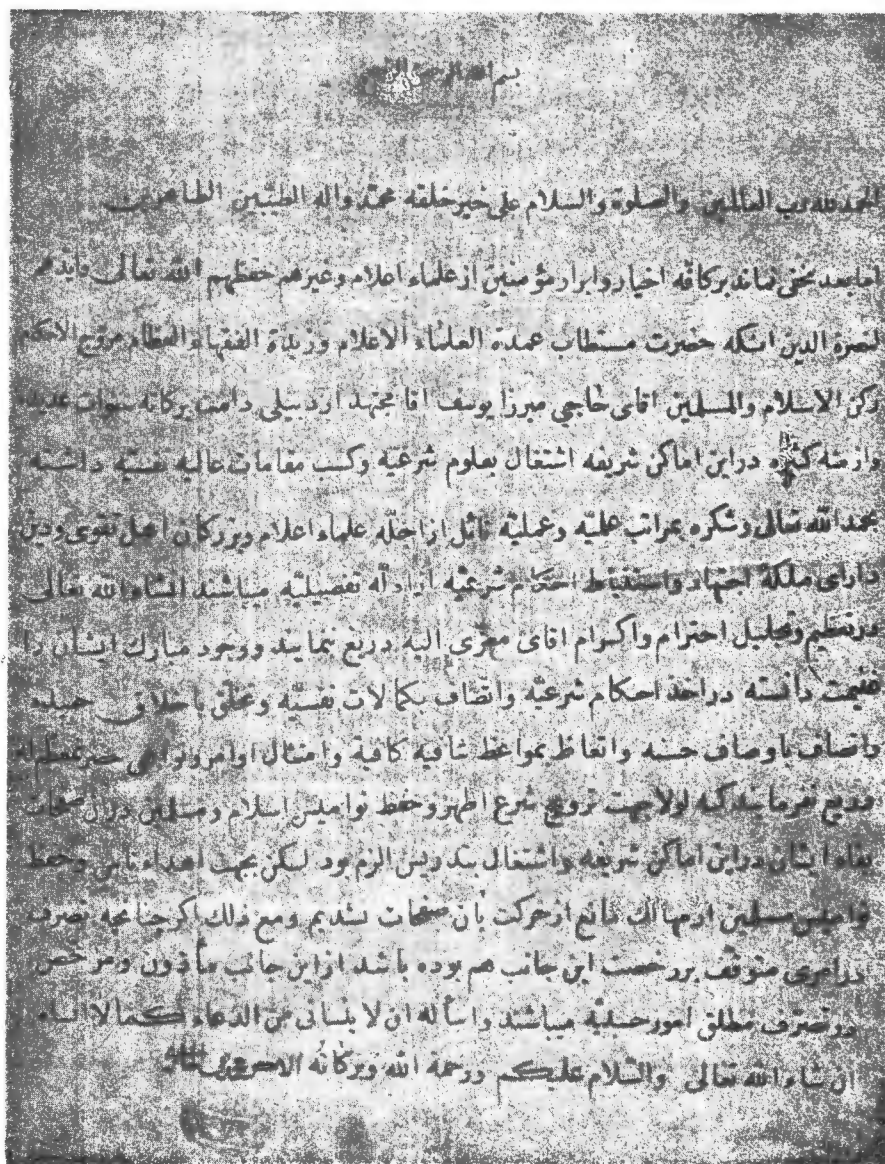 بسم الله الرحمن
الحمد لله رب العالمین والصلوة والسلام علی خیر خلقه محمد واله الطیبین الطاهرین
اما بعد مخفی نماند برکافه اخیار وابرار مؤمنین از علماء اعلام وغیرهم حفظهم الله تعالی وایدهم
لنصرة الدین اینکه حضرت مستطاب عمدة العلماء الاعلام وزبدة الفقهاء العظام مروج الاحکام
رکن الاسلام والمسلمین اقای حاجی میرزا یوسف اقا مجتهد اردبیلی دامت برکاته سنوات عدیده
وازمنه کثیره دراین اماکن شریفه اشتغال بعلوم شرعیه وکسب مقامات عالیه نفسیه داشته
بحمدالله تعالی وشکره بمراتب علمیه وعملیه نائل ازاجله علماء اعلام وبزرکان اهل تقوی ودین
دارای ملکه اجتهاد واستنباط احکام شرعیه ازادله تفصیلیه میباشند انشاء الله تعالی
درتعظیم وتجلیل احترام واکرام اقای معزی الیه دریغ ننمایند ووجود مبارک ایشان را
غنیمت دانسته دراخذ احکام شرعیه واتصاف بکمالات نفسیه وتخلق باخلاق حمیده
واتصاف باوصاف حسنه واتعاظ بمواعظ شافیه کافیه وامتثال اوامر ونواهی حضر معظم له
دریغ نفرمایند که اولا جهت ترویج شرع اطهر وحفظ نوامیس اسلام ومسلمین دران صفحات
بقاء ایشان دراین اماکن شریفه واشتغال بتدریس الزم بود لیکن بجهت اهتداء ناس وحفظ
نوامیس مسلمین ازمهالک مانع ازحرکت بان صفحات نشدیم ومع ذلک اکر چنانچه تصرف
درامری متوقف بر رخصت این جانب هم بوده باشد ازاین جانب مأذون ومرخص
درتصرف مطلق امور حسبیه میباشند واسأله ان لا ینسانی من الدعاء کما لا انساه
ان شاء الله تعالی والسلام علیکم ورحمة الله وبرکاته